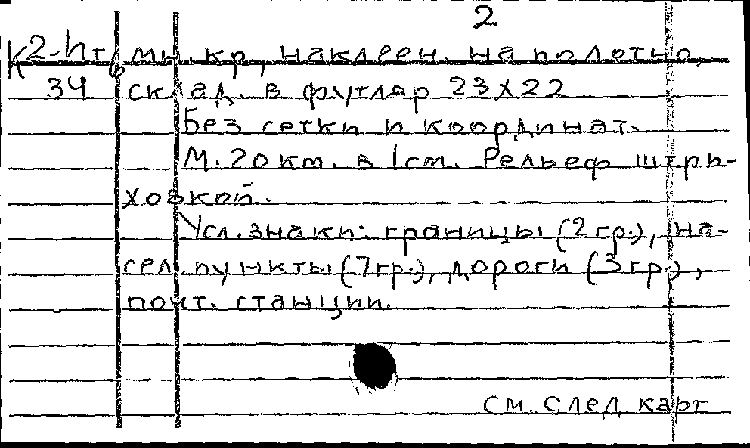 2
К2-Нт/6 мн. кр., наклеен. на полотно,
34 склад. в футляр 23х22
Без сетки и координат.
М. 20 км. в 1 см. Рельеф штри-
ховкой.
Усл. знаки: границы (2 гр.), на-
сел. пункты (7 гр.), дороги (3 гр.),
почт. станции.
см. след. карт